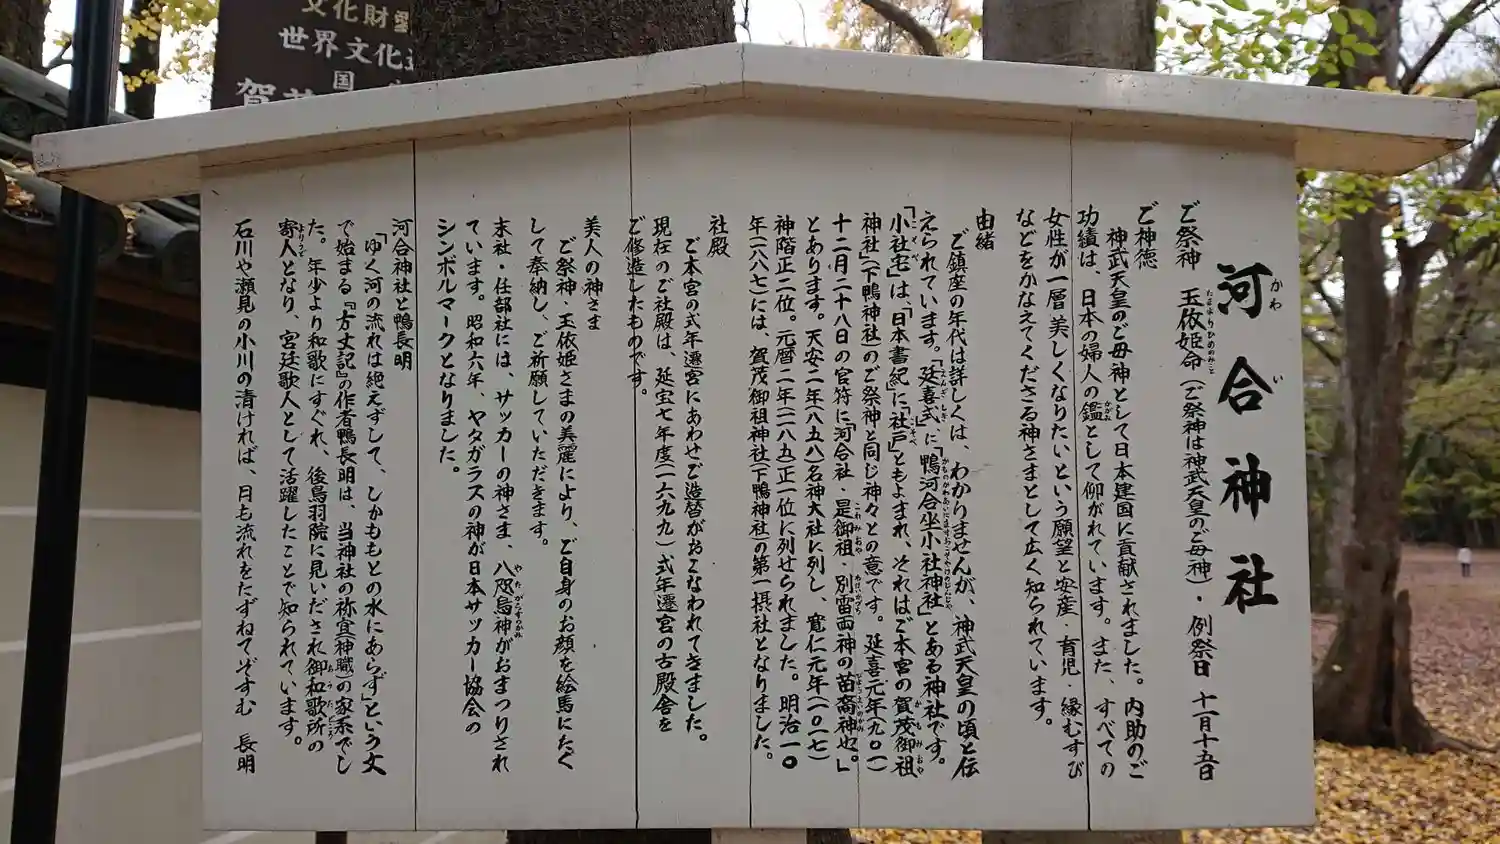 文化財
世界文化
国
賀茂
河合神社
かわ い
ご祭神 玉依姫命(ご祭神は神武天皇のご母神)・例祭日 十一月十五日
たまよりひめのみこと
ご神徳
神武天皇のご母神として日本建国に貢献されました。内助のご
功績は、日本の婦人の鑑として仰がれています。また、すべての
かがみ
女性が一層美しくなりたいという願望と安産・育児・縁むすび
などをかなえてくださる神さまとして広く知られています。
由緒
ご鎮座の年代は詳しくは、わかりませんが、神武天皇の頃と伝
えられています。「延喜式」に「鴨河合坐小社神社」とある神社です。
えんぎしき
「小社宅」は、「日本書紀に「社戸」ともよまれ、それはご本宮の賀茂御祖
こそべ こそべ かもみおや
神社」(下鴨神社)のご祭神と同じ神々との意です。延喜元年(九〇一)
十二月二十八日の官符に「河合社・是御祖・別雷両神の苗裔神也。」
これみおや わけいかづち
とあります。天安二年(八五八)名神大社に列し、寛仁元年(一〇一七)
神階正二位。元暦二年(一一八五)正一位に列せられました。明治一〇
年(一八七七)には、賀茂御祖神社(下鴨神社の第一摂社となりました。
社殿
ご本宮の式年遷宮にあわせご造替がおこなわれてきました。
現在のご社殿は、延宝七年度(一六九九)式年遷宮の古殿舎を
ご修造したものです。
美人の神さま
ご祭神・玉依姫さまの美麗により、ご自身のお顔を絵馬にたく
して奉納し、ご祈願していただきます。
末社・任部社には、サッカーの神さま、八咫烏神がおまつりされ
やたがらすのかみ
ています。昭和六年、ヤタガラスの神が日本サッカー協会の
シンボルマークとなりました。
河合神社と鴨長明
「ゆく河の流れは絶えずして、しかももとの水にあらず」という文
で始まる『方丈記』の作者鴨長明は、当神社の祢宜(神職)の家系でし
た。年少より和歌にすぐれ、後鳥羽院に見いだされ御和歌所の
おうたどころ
寄人となり、宮廷歌人として活躍したことで知られています。
よりうど
石川や瀬見の小川の清ければ、月も流れをたずねてぞすむ 長明